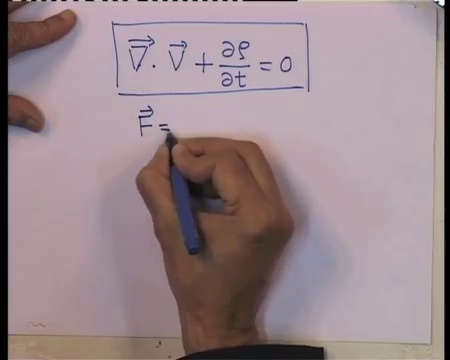 ∇⃗ · V⃗ + ∂ρ/∂t = 0
F⃗ =